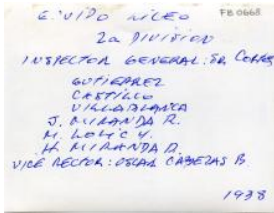 FB 0668
2a DIVISION
INSPECTOR GENERAL: SR. CORTES
GUTIERREZ
CASTILLO
VILLABLANCA
J. MIRANDA R.
M. Y.
H. MIRANDA R.
VICE RECTOR: OSCAR CABEZAS B.
1938